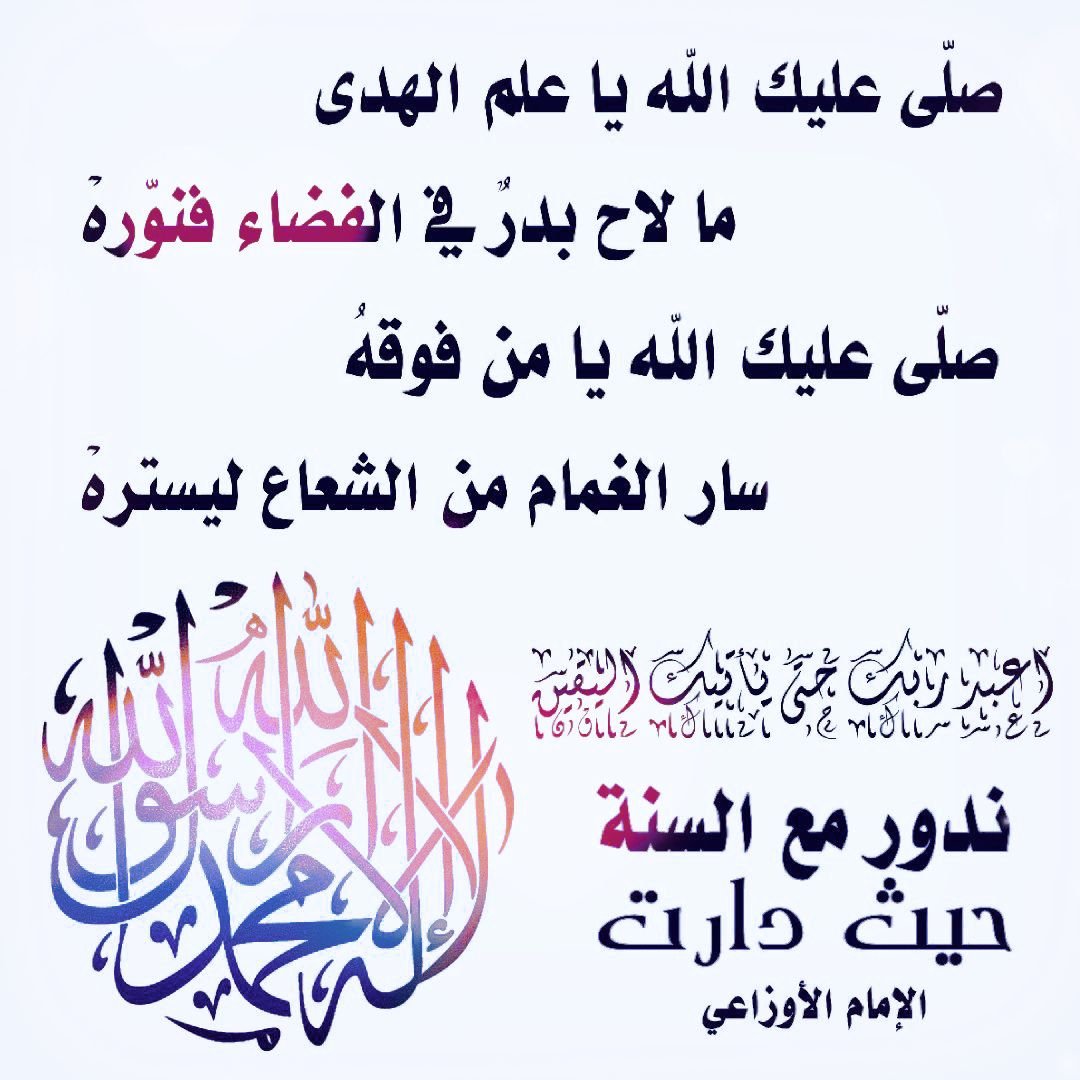 صلّى عليك الله يا علم الهدى
ما لاح بدرٌ في الفضاء فنوّرهْ
صلّى عليك الله يا من فوقهُ
سار الغمام من الشعاع ليسترهْ
اعبد ربك حتى يأتيك اليقين
ندور مع السنة
حيث دارت
الإمام الأوزاعي
لا إله إلا الله محمد رسول الله